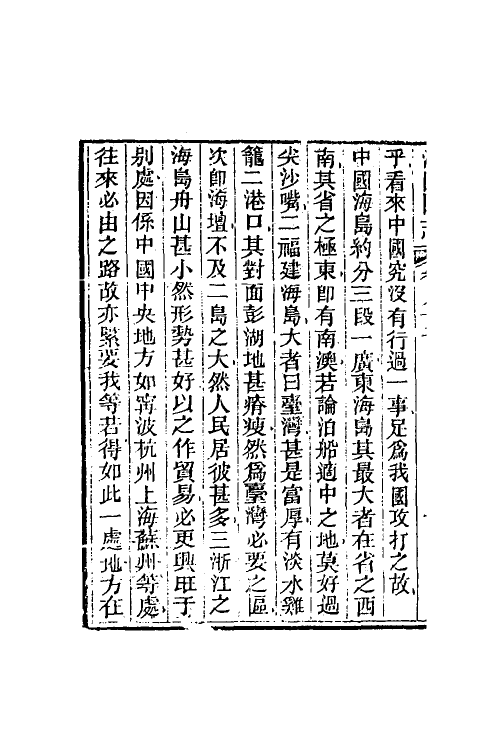 乎看來中國究沒有行過一事足爲我國攻打之故
中國海島約分三段一廣東海島其最大者在省之西
南其省之極東即有南澳若論泊船適中之地莫好過
尖沙嘴二福建海島大者曰臺灣甚是富厚有淡水雞
籠二港口其對面彭湖地甚瘠瘦然爲臺灣必要之區
次即海壇不及二島之大然人民居彼甚多三浙江之
海島舟山甚小然形勢甚好以之作貿易必更興旺于
別處因係中國中央地方如甯波杭州上海蘇州等處
往來必由之路故亦緊要我等若得如此一處地方在